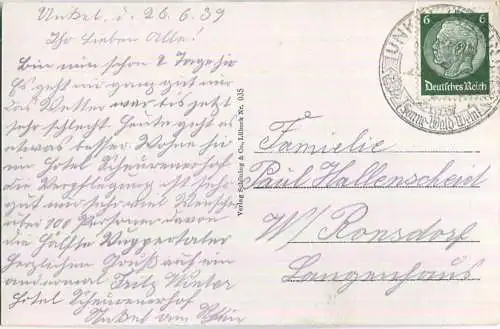 Unkel, d. 26.6.39
Ihr lieben Alle!
Bin nun schon 2 Tage hier
Es geht mir ganz gut nur
das Wetter war bis jetzt
sehr schlecht. Heute geht es
etwas besser. Wohne hier
im Hotel Scheurenerhof
die Verpflegung ist sehr
gut nur sehr viel Menschen
über 100 Personen davon
die Hälfte Wuppertaler
Herzlichen Gruß auf ein
andermal Fritz Winter
Hotel Scheurenerhof
Unkel am Rhein
Verlag Schöning & Co., Lübeck Nr. 935
UNKEL
6 6
Deutsches Reich
Sonne, Wald, Wein
Familie
Paul Hallenscheid
W/ Ronsdorf
Langenhaus